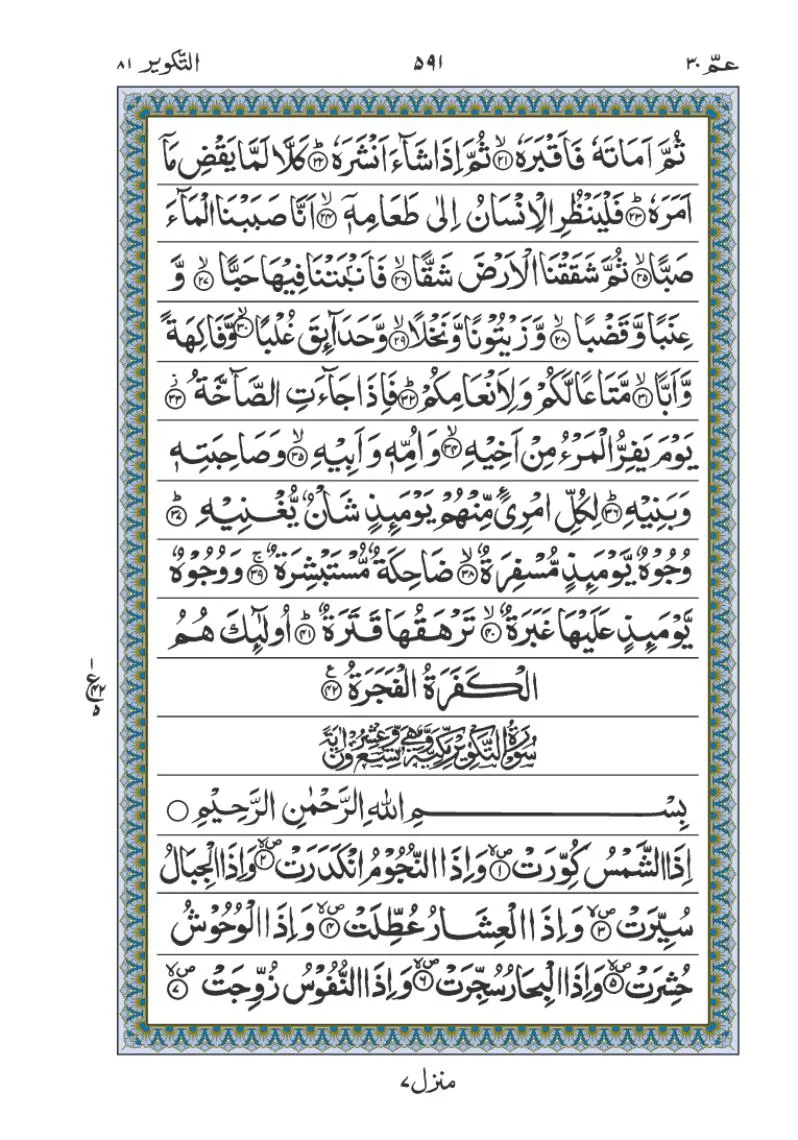 عمّ ۳۰
۵۹۱
التّكوير ۸۱
ثُمَّ اَمَاتَهٗ فَاَقْبَرَهٗ ۙ﴿۲۱﴾ ثُمَّ اِذَا شَآءَ اَنْشَرَهٗ ؕ﴿۲۲﴾ كَلَّا لَمَّا يَقْضِ مَاۤ
اَمَرَهٗ ؕ﴿۲۳﴾ فَلْيَنْظُرِ الْاِنْسَانُ اِلٰى طَعَامِهٖۤ ۙ﴿۲۴﴾ اَنَّا صَبَبْنَا الْمَآءَ
صَبًّا ۙ﴿۲۵﴾ ثُمَّ شَقَقْنَا الْاَرْضَ شَقًّا ۙ﴿۲۶﴾ فَاَنْۢبَتْنَا فِيْهَا حَبًّا ۙ﴿۲۷﴾ وَّ
عِنَبًا وَّقَضْبًا ۙ﴿۲۸﴾ وَّ زَيْتُوْنًا وَّنَخْلًا ۙ﴿۲۹﴾ وَّحَدَآئِقَ غُلْبًا ۙ﴿۳۰﴾ وَّفَاكِهَةً
وَّاَبًّا ۙ﴿۳۱﴾ مَّتَاعًا لَّكُمْ وَلِاَنْعَامِكُمْ ؕ﴿۳۲﴾ فَاِذَا جَآءَتِ الصَّآخَّةُ ۫﴿۳۳﴾
يَوْمَ يَفِرُّ الْمَرْءُ مِنْ اَخِيْهِ ۙ﴿۳۴﴾ وَاُمِّهٖ وَاَبِيْهِ ۙ﴿۳۵﴾ وَصَاحِبَتِهٖ
وَبَنِيْهِ ؕ﴿۳۶﴾ لِكُلِّ امْرِئٍ مِّنْهُمْ يَوْمَئِذٍ شَاْنٌ يُّغْنِيْهِ ؕ﴿۳۷﴾
وُجُوْهٌ يَّوْمَئِذٍ مُّسْفِرَةٌ ۙ﴿۳۸﴾ ضَاحِكَةٌ مُّسْتَبْشِرَةٌ ۚ﴿۳۹﴾ وَوُجُوْهٌ
يَّوْمَئِذٍ عَلَيْهَا غَبَرَةٌ ۙ﴿۴۰﴾ تَرْهَقُهَا قَتَرَةٌ ؕ﴿۴۱﴾ اُولٰٓئِكَ هُمُ
الْكَفَرَةُ الْفَجَرَةُ ﴿۴۲﴾ ع
۴۲ ع ۵
سُوْرَةُ التَّكْوِيْرِ مَكِّيَّةٌ وَّهِيَ تِسْعٌ وَّعِشْرُوْنَ اٰيَةً
بِسْمِ اللهِ الرَّحْمٰنِ الرَّحِيْمِ ○
اِذَا الشَّمْسُ كُوِّرَتْ ۪ۙ﴿۱﴾ وَاِذَا النُّجُوْمُ انْكَدَرَتْ ۪ۙ﴿۲﴾ وَاِذَا الْجِبَالُ
سُيِّرَتْ ۪ۙ﴿۳﴾ وَاِذَا الْعِشَارُ عُطِّلَتْ ۪ۙ﴿۴﴾ وَاِذَا الْوُحُوْشُ
حُشِرَتْ ۪ۙ﴿۵﴾ وَاِذَا الْبِحَارُ سُجِّرَتْ ۪ۙ﴿۶﴾ وَاِذَا النُّفُوْسُ زُوِّجَتْ ۪ۙ﴿۷﴾
منزل ۷